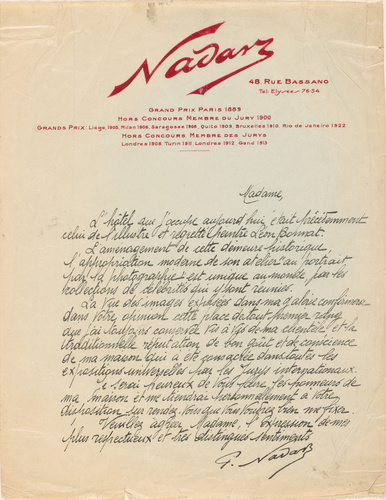 Nadar
48 RUE BASSANO
Tel: Elysées 76-54
GRAND PRIX PARIS 1889
HORS CONCOURS MEMBRE DU JURY 1900
GRANDS PRIX: Liège 1905, Milan 1906, Saragosse 1908, Quito 1909, Bruxelles 1910, Rio de Janeiro 1922
HORS CONCOURS MEMBRE DES JURYS
Londres 1908, Turin 1911, Londres 1912, Gand 1913
Madame,
L'hôtel que j'occupe aujourd'hui, était précédemment
celui de l'illustre et regretté peintre Léon Bonnat.
L'aménagement de cette demeure historique,
l'appropriation moderne de son atelier au portrait
par la photographie est unique au monde par les
collections de célébrités qui y sont réunies.
La Vue des images exposées dans ma galerie confirmera
dans votre opinion cette place de tout premier rang
que j'ai toujours conservée vis à vis de ma clientèle et la
traditionnelle réputation de bon goût et de conscience
de ma maison qui a été consacrée dans toutes les
expositions universelles par les Jurys internationaux.
Je serai heureux de vous faire les honneurs de
ma maison et me tiendrai personnellement à votre
disposition sur rendez vous que vous voudrez bien me fixer.
Veuillez agréer Madame, l'expression de mes
plus respectueux et très distingués sentiments
P. Nadar